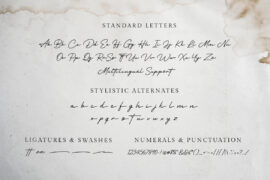 STANDARD LETTERS
Aa Bb Cc Dd Ee Ff Gg Hh Ii Jj Kk Ll Mm Nn
Oo Pp Qq Rr Ss Tt Uu Vv Ww Xx Yy Zz
Multilingual Support
STYLISTIC ALTERNATES
a b c d e f g h i j k l m n
o p q r s t u v w x y z
LIGATURES & SWASHES
NUMERALS & PUNCTUATION
tt oo
1234567890